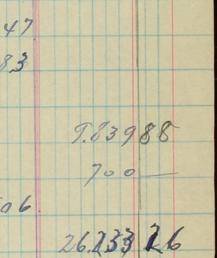 47
83
T.83988
700 —
06
26.233